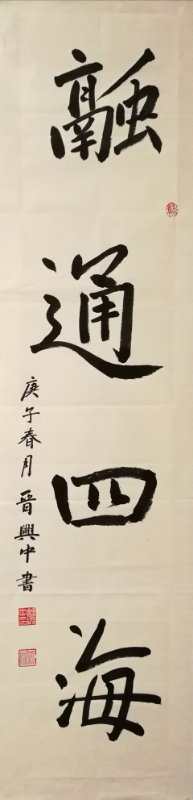 融通四海
庚午春月晉興中書